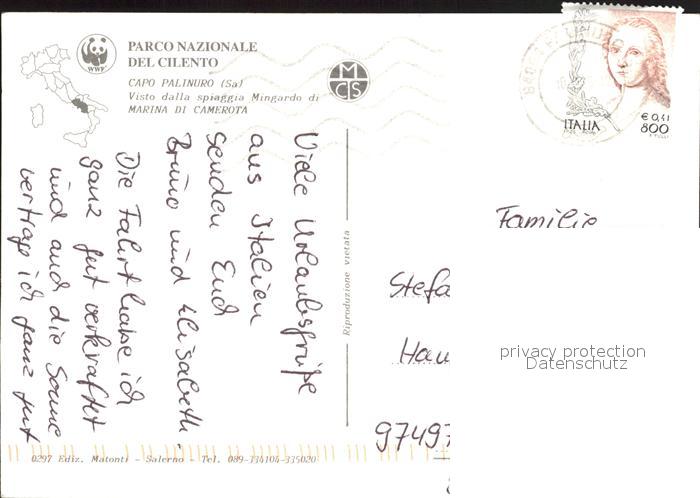 PARCO NAZIONALE
DEL CILENTO
CAPO PALINURO (Sa)
Visto dalla spiaggia Mingardo di
MARINA DI CAMEROTA
WWF
MCS
ITALIA
€ 0,41
800
Viele Urlaubsgrüße
aus Italien
senden Euch
Bruno und Elisabeth.
Die Fahrt habe ich
ganz gut verkraftet
und auch die Sonne
vertrag ich ganz gut
Riproduzione vietata
Familie
Stefa
Hau
97497
privacy protection
Datenschutz
0297 Ediz. Matonti - Salerno - Tel. 089-334104-335020